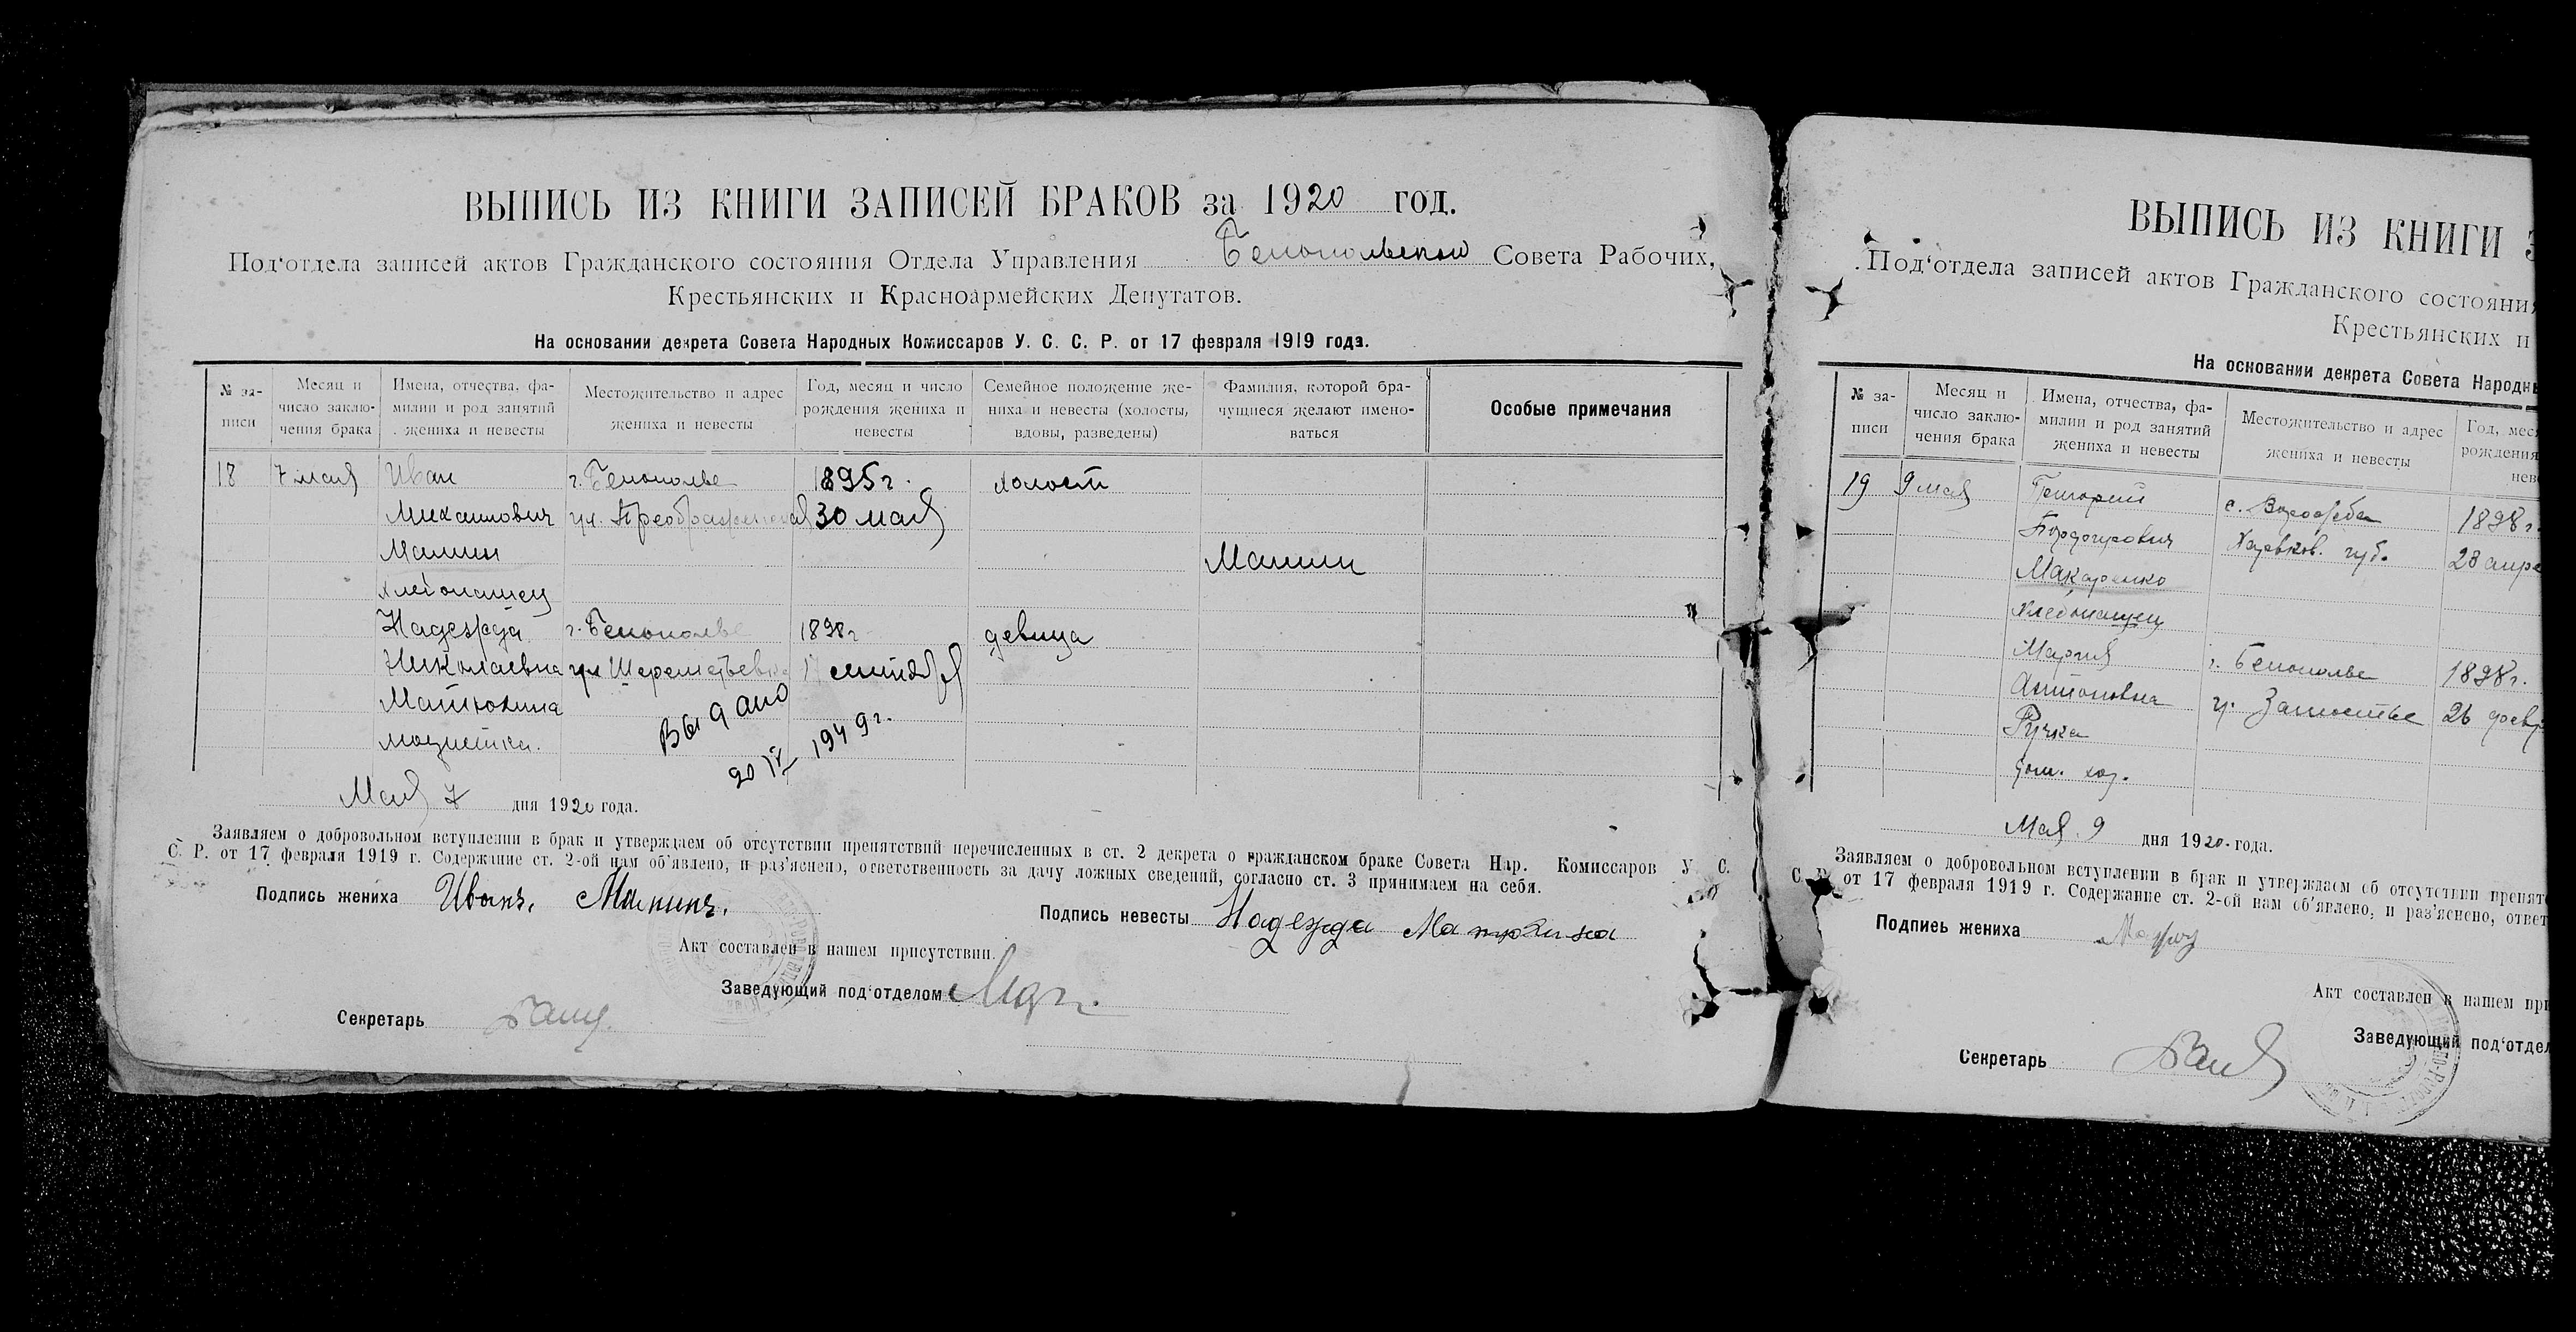 ВЫПИСЬ ИЗ КНИГИ ЗАПИСЕЙ БРАКОВ за 1920 год.
Под‘отдела записей актов Гражданского состояния Отдела Управления Белопольского Совета Рабочих,
Крестьянских и Красноармейских Депутатов.
На основании декрета Совета Народных Комиссаров У. С. С. Р. от 17 февраля 1919 года.
№ за-
писи
Месяц и
число заклю-
чения брака
Имена, отчества, фа-
милии и род занятий
жениха и невесты
Местожительство и адрес
жениха и невесты
Год, месяц и число
рождения жениха и
невесты
Семейное положение же-
ниха и невесты (холосты,
вдовы, разведены)
Фамилия, которой бра-
чущиеся желают имено-
ваться
Особые примечания
18 7 мая Иван г. Белополье 1895 г. холост
Михаилович ул. Преображенская 30 мая
Манин Манин
хлебопашец
Надежда г. Белополье 1898 г девица
Николаевна ул Шереметьевка сентября
Матюхина
модистка.
Выдано
20 IV 1949 г.
Мая 7 дня 1920 года.
Заявляем о добровольном вступлении в брак и утверждаем об отсутствии препятствий перечисленных в ст. 2 декрета о гражданском браке Совета Нар. Комиссаров У. С.
С. Р. от 17 февраля 1919 г. Содержание ст. 2-ой нам об‘явлено, и раз‘яснено, ответственность за дачу ложных сведений, согласно ст. 3 принимаем на себя.
Подпись жениха Иванъ Манинъ.
Подпись невесты Надежда Матюхина
Акт составлен в нашем присутствии.
Заведующий под‘отделом
Секретарь
ВЫПИСЬ ИЗ КНИГИ
Под‘отдела записей актов Гражданского состояния
Крестьянских и
На основании декрета Совета Народн
№ за-
писи
Месяц и
число заклю-
чения брака
Имена, отчества, фа-
милии и род занятий
жениха и невесты
Местожительство и адрес
жениха и невесты
Год, мес
рождения
нев
19 9 мая Григорий с. Ворожба 1898 г.
Харьков. губ. 28 апре
Макаренко
хлебопашец
Мария г. Белополье 1898 г.
Антоновна ул. Замостье 26 февр
Ручка
дом. хоз.
Мая 9 дня 1920 года.
Заявляем о добровольном вступлении в брак и утверждаем об отсутствии препят
С. Р. от 17 февраля 1919 г. Содержание ст. 2-ой нам об‘явлено, и раз‘яснено, ответ
Подпись жениха
Акт составлен в нашем при
Заведующий под‘отдел
Секретарь